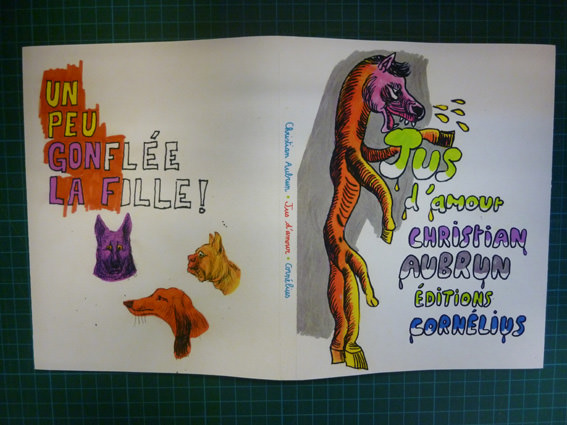 UN
PEU
GONFLÉE
LA FILLE!
Christian Aubrun • Jus d'amour • Cornélius
Jus
d'amour
CHRIStIAN
AUBRUN
ÉDITIONS
CORNÉLIUS